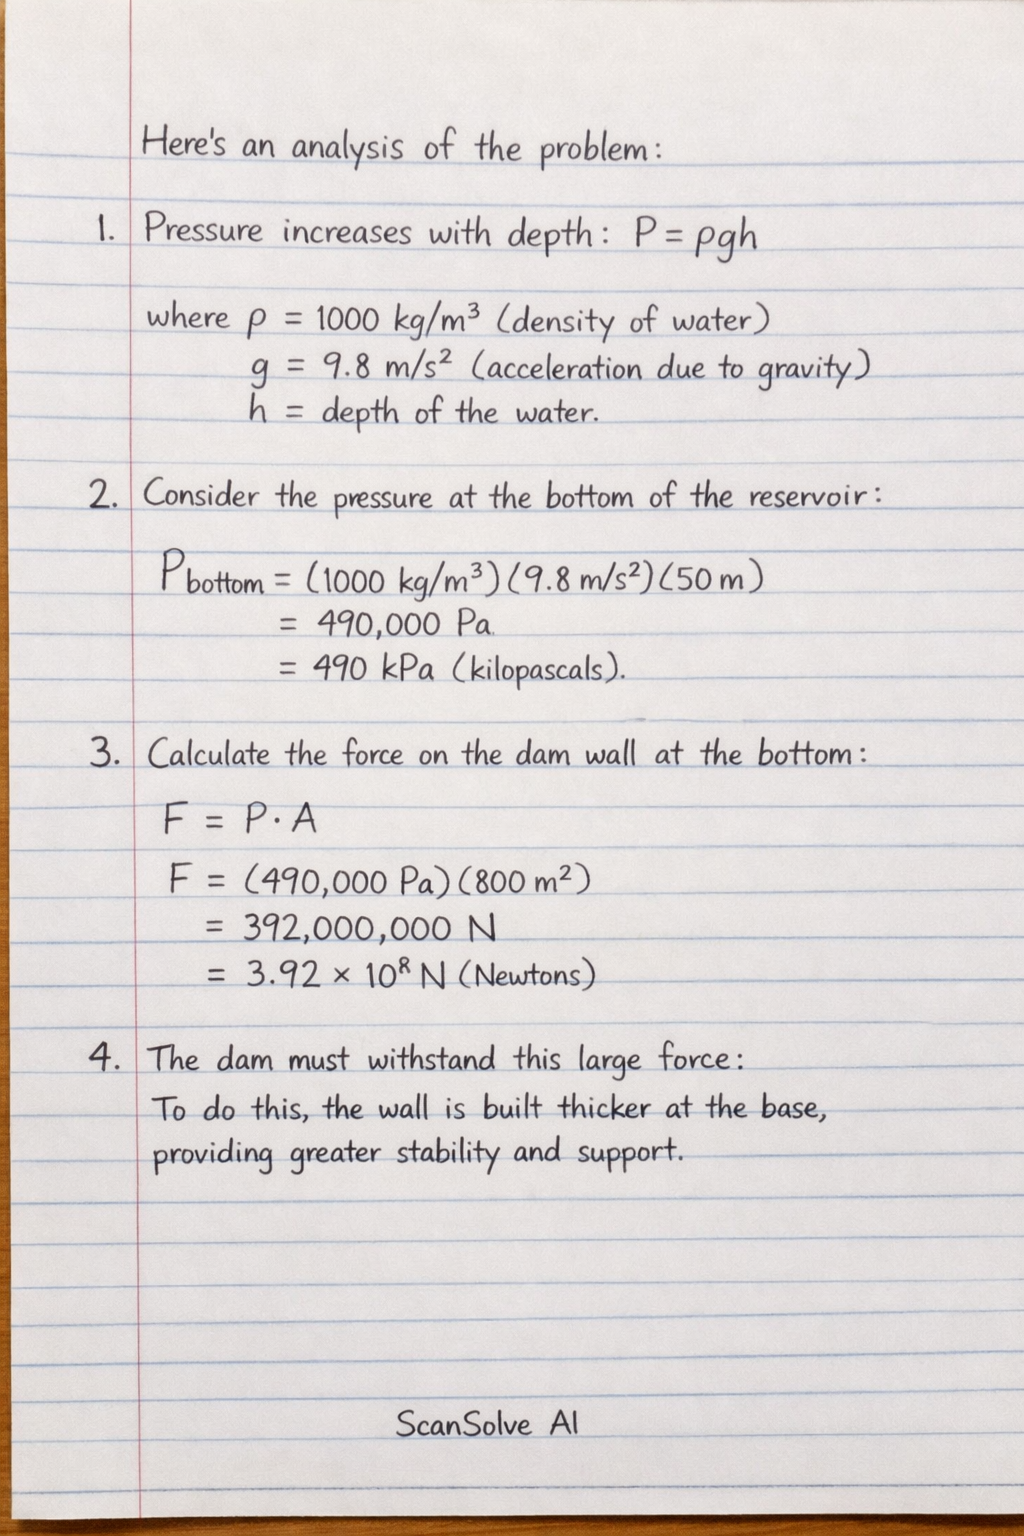 Here's an analysis of the problem:
1. Pressure increases with depth: P = ρgh
where ρ = 1000 kg/m³ (density of water)
g = 9.8 m/s² (acceleration due to gravity)
h = depth of the water.
2. Consider the pressure at the bottom of the reservoir:
Pbottom = (1000 kg/m³)(9.8 m/s²)(50 m)
= 490,000 Pa.
= 490 kPa (kilopascals).
3. Calculate the force on the dam wall at the bottom:
F = P · A
F = (490,000 Pa)(800 m²)
= 392,000,000 N
= 3.92 × 10⁸ N (Newtons)
4. The dam must withstand this large force:
To do this, the wall is built thicker at the base,
providing greater stability and support.
ScanSolve AI